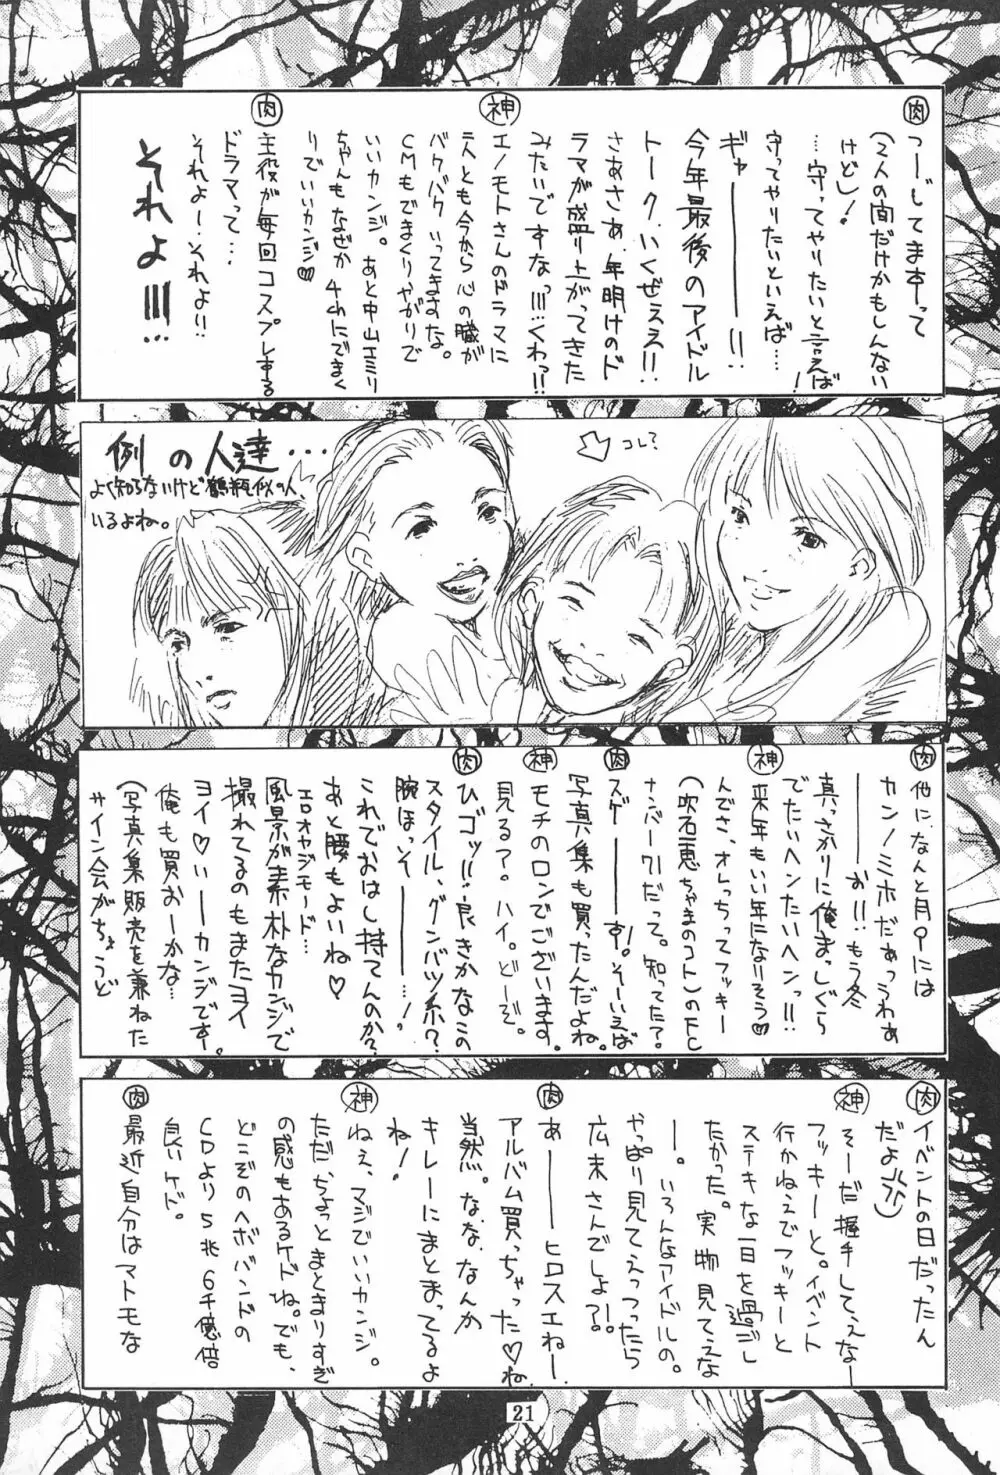 肉 つーじてますって
(2人の間だけかもしんない
けどし!
…守ってやりたいと言えば
守ってやりたいといえば…!
ギャーーー!!
今年最後のアイドル
トーク、いくぜええ!!
さあさあ、年明けのド
ラマが盛り上がってきた
みたいですなっ!!!くわっ!!
神 エノモトさんのドラマに
2人とも今から心の臓が
バクバクいってますな。
CMもでまくりやがりで
いいカンジ。あと中山エミリ
ちゃんもなぜか4chにでまく
りでいいカンジ♡
肉 主役が毎回コスプレする
ドラマって…
それよー、それよ!!
それよ!!!…
例の人達…
よく知らないけど鶴瓶似の人
いるよね。
コレ?
肉 他に、なんと月9には
カンノミホだぁっうわぁ
ーーお!!もう冬
真っさかりに俺まっしぐら
でたいヘンたいヘンっ!!
神 来年もいい年になりそう♡
んでさ、オレっちってフッキー
(吹石恵ちゃまのコト)のFC
ナンバー9!だって。知ってた?
肉 スゲーーーす!そーいえば
写真集も買ったんだよね。
神 モチのロンでございます。
見るア?ハイ。どーぞ。
肉 ひゴッ!!良きかなこの
スタイル、グンバツ系?
腕ほっそーーー…!
これでおはし持てんのか?
あと腰もよいね♡
エロオヤジモード…
風景が素朴なカンジで
撮れてるのもまたヨイ
ヨイ♡いーカンジです。
俺も買おーかな…
(写真集販売を兼ねた
サイン会がちょうど
肉 イベントの日だったん
だよ)
神 そーだ握手してえなー
フッキーと。イベント
行かねえでフッキーと
ステキな一日を過ごし
たかった。実物見てえな
ー。いろんなアイドルの。
やっぱり見てえっつったら
広末さんでしょ?!
肉 あーーヒロスエねー
アルバム買っちゃった♡ね
当然。なな、なんか
キレーにまとまってるよ
ね!
神 ねぇ、マジでいいカンジ。
ただ、ちょっとまとまりすぎ
の感もあるケドね。でも、
どこぞのヘボバンドの
CDより5兆6千億倍
良いケド。
肉 最近自分はマトモな
21